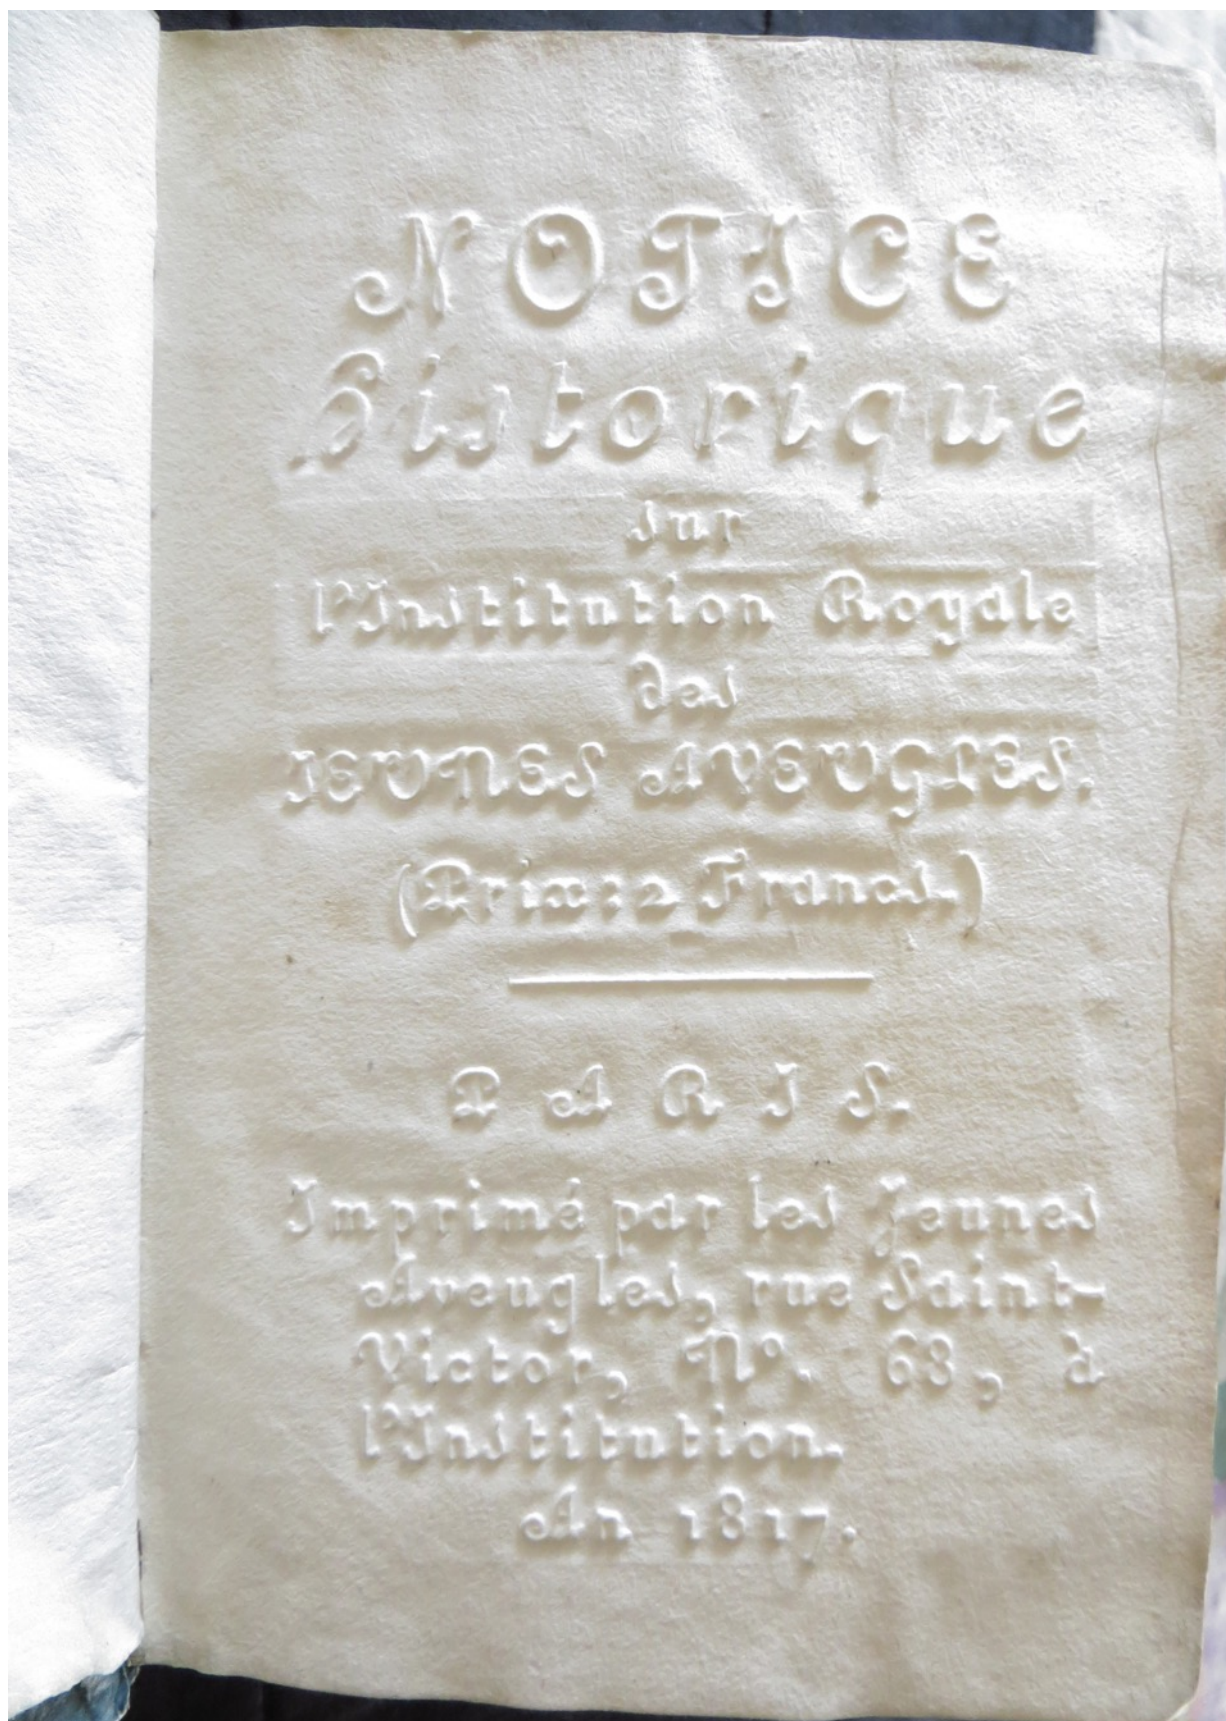 NOTICE
Historique
sur
l'Institution Royale
des
JEUNES AVEUGLES.
(Prix: 2 Francs.)
PARIS.
Imprimé par les Jeunes
Aveugles, rue Saint-
Victor, No. 68, à
l'Institution.
An 1817.